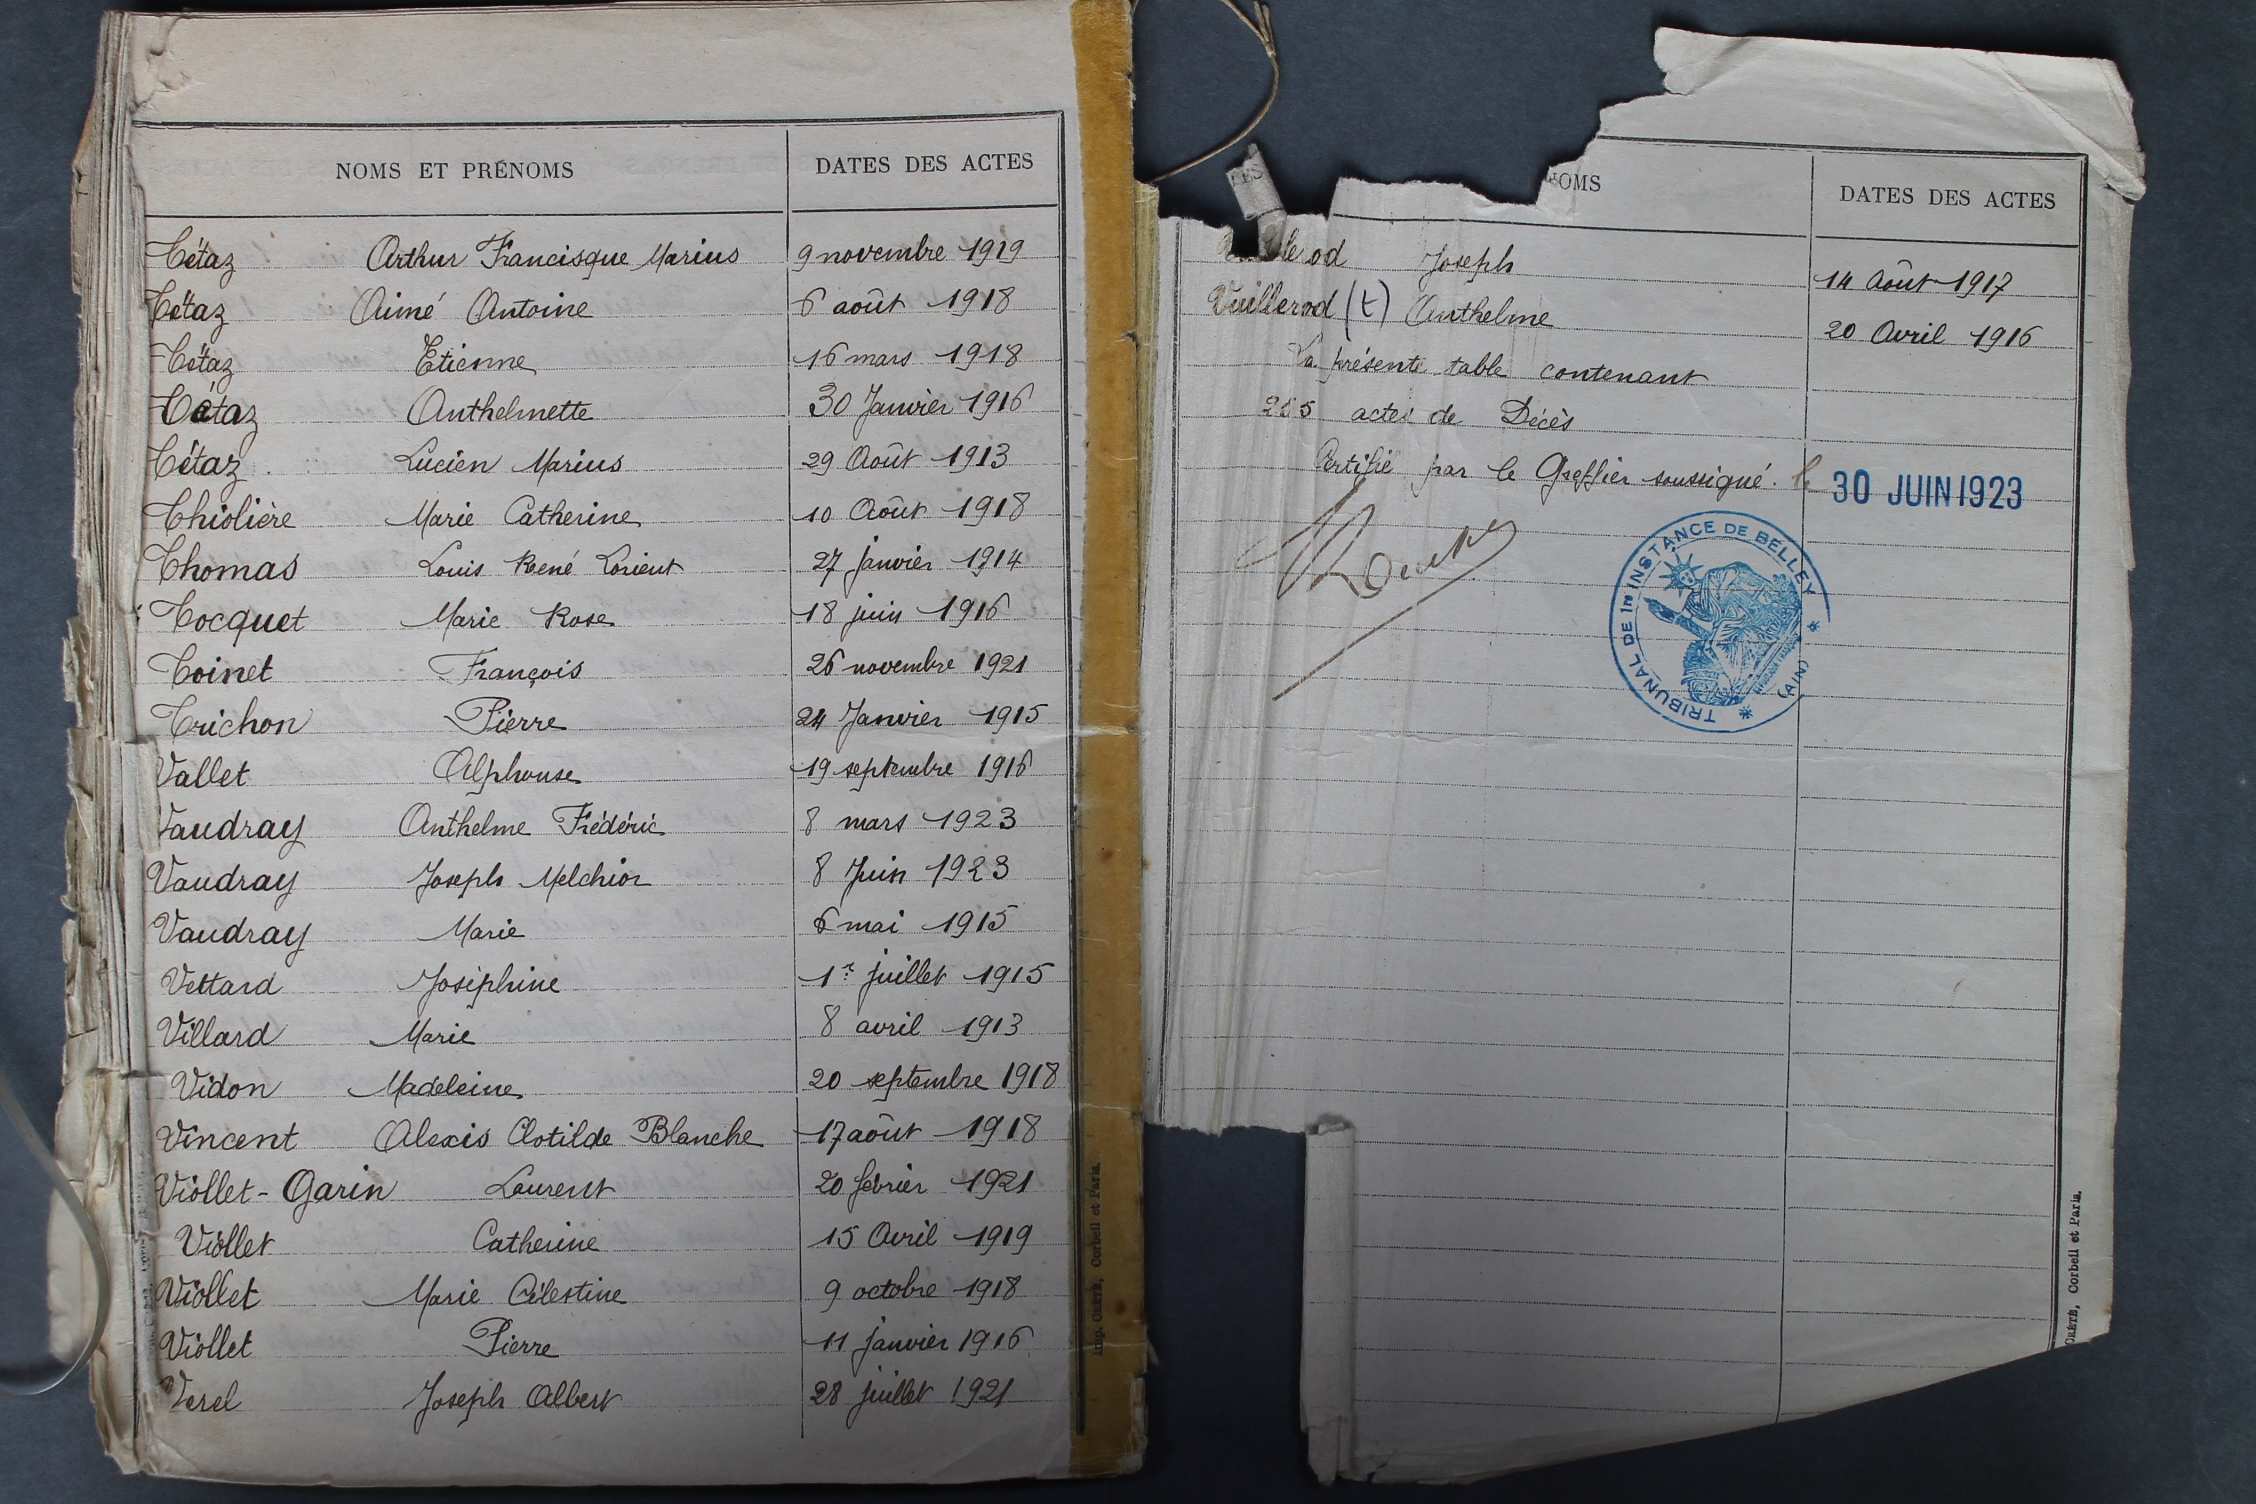 NOMS ET PRÉNOMS DATES DES ACTES
Tétaz Arthur Francisque Marius 9 novembre 1919
Tétaz Aimé Antoine 6 août 1918
Tétaz Etienne 16 mars 1918
Tétaz Anthelmette 30 Janvier 1916
Tétaz Lucien Marius 29 Août 1913
Thiolière Marie Catherine 10 Août 1918
Thomas Louis René Lorient 27 janvier 1914
Tocquet Marie Rose 18 juin 1916
Toinet François 26 novembre 1921
Trichon Pierre 24 Janvier 1915
Vallet Alphonse 19 septembre 1916
Vaudray Anthelme Frédéric 8 mars 1923
Vaudray Joseph Melchior 8 Juin 1923
Vaudray Marie 6 mai 1915
Vettard Joséphine 1er juillet 1915
Villard Marie 8 avril 1913
Vidon Madeleine 20 septembre 1918
Vincent Alexis Clotilde Blanche 17 août 1918
Viollet-Garin Laurent 20 février 1921
Viollet Catherine 15 Avril 1919
Viollet Marie Célestine 9 octobre 1918
Viollet Pierre 11 janvier 1916
Verel Joseph Albert 28 juillet 1921
Imp. CRÉTÉ, Corbeil et Paris.
NOMS DATES DES ACTES
Joseph 14 Août 1917
Vuillerod (t) Anthelme 20 Avril 1916
La présente table contenant
actes de Décès
Certifié par le Greffier soussigné. le 30 JUIN 1923
TRIBUNAL DE 1re INSTANCE DE BELLEY
(AIN)
CRÉTÉ, Corbeil et Paris.